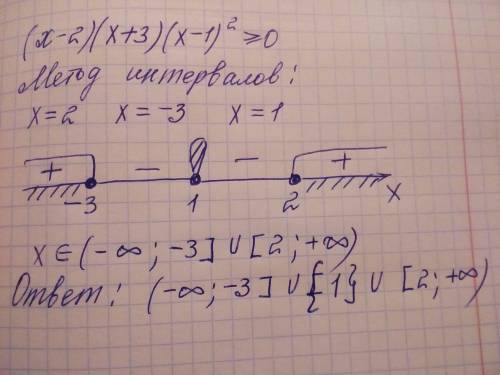 (x-2)(x+3)(x-1)² ≥0
Метод интервалов:
x=2 x=-3 x=1
+ − − +
-3 1 2 x
x∈(-∞; -3] ∪ [2; +∞)
Ответ: (-∞; -3] ∪ {1} ∪ [2; +∞)